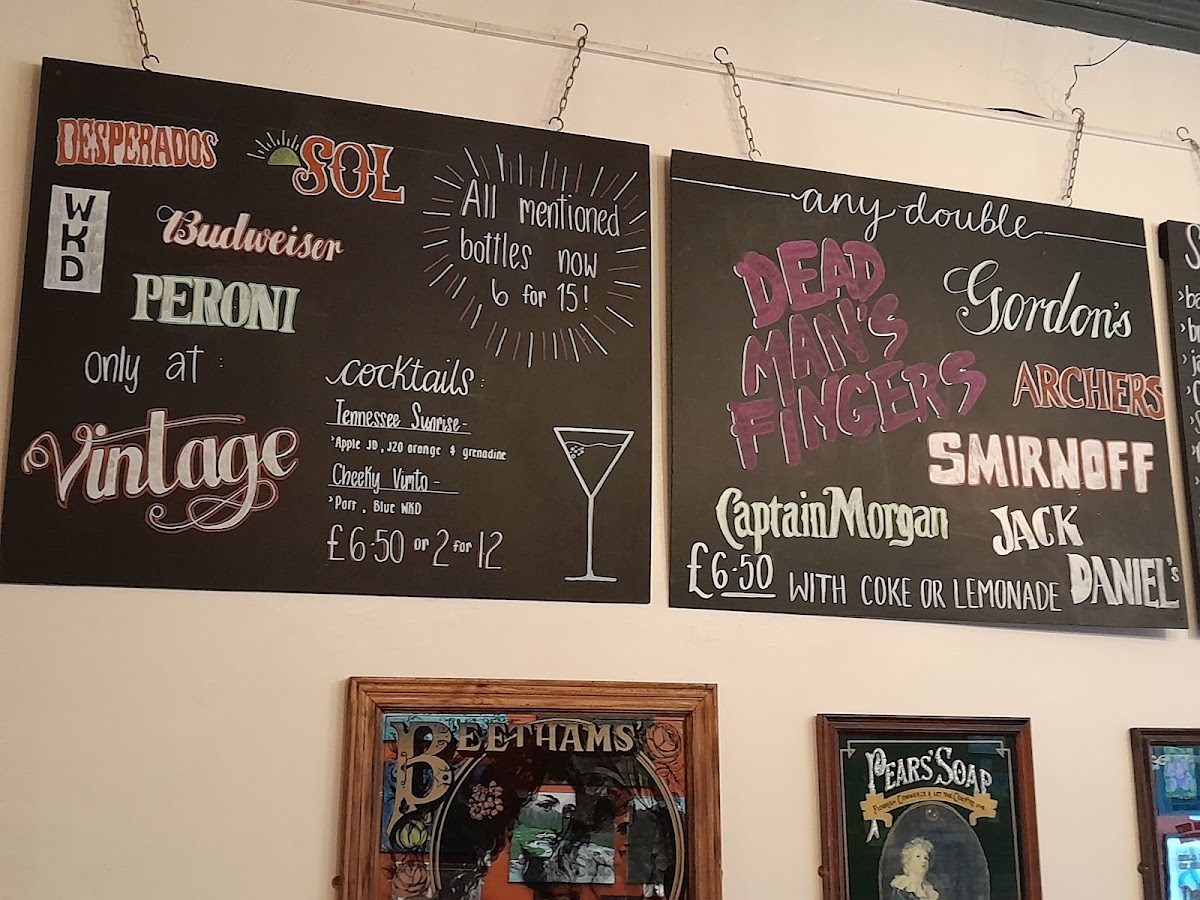 DESPERADOS
SOL
WKD
Budweiser
PERONI
only at :
Vintage
All mentioned
bottles now
6 for 15!
cocktails:
Tennessee Sunrise-
Apple JD, J20 orange & grenadine
Cheeky Vimto-
Port, Blue WKD
£6.50 or 2 for 12
any double
DEAD
MAN'S
FINGERS
Gordon's
ARCHERS
SMIRNOFF
Captain Morgan
JACK
DANIEL's
£6.50 WITH COKE OR LEMONADE
BEETHAMS'
PEARS' SOAP